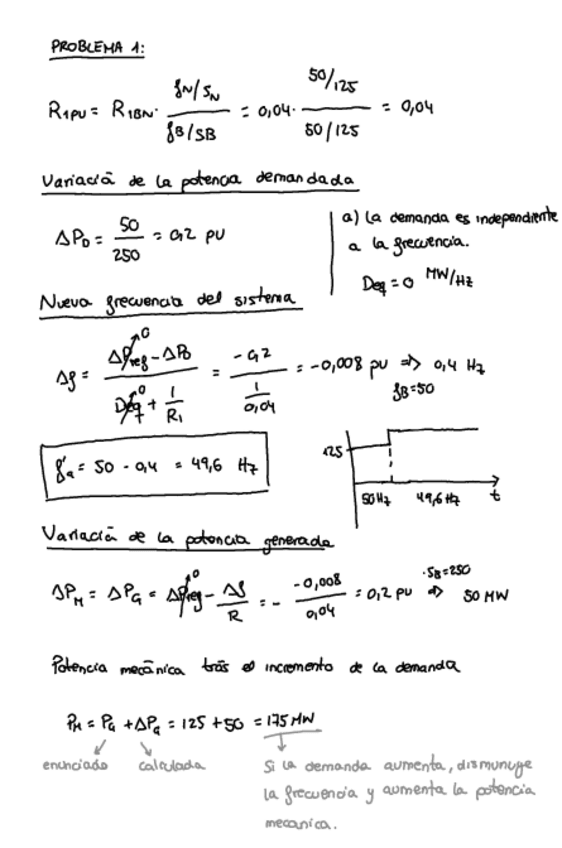 PROBLEMA 1:
R1PU = R1BN · (fN/SN)/(fB/SB) = 0,04 · (50/125)/(50/125) = 0,04
Variación de la potencia demandada
ΔPD = 50/250 = 0,2 PU
a) La demanda es independiente
a la frecuencia.
Deq = 0 MW/Hz
Nueva frecuencia del sistema
Δf = (ΔPreg→0 - ΔPD)/(Deq→0 + 1/R1) = -0,2/(1/0,04) = -0,008 pu => 0,4 Hz
fB=50
f'a = 50 - 0,4 = 49,6 Hz
125
50Hz 49,6Hz t
Variación de la potencia generada
ΔPM = ΔPG = ΔPreg→0 - Δf/R = - -0,008/0,04 = 0,2 PU => 50 MW
·SB=250
Potencia mecánica trás el incremento de la demanda
PM = PG + ΔPG = 125 + 50 = 175 MW
enunciado calculada
Si la demanda aumenta, dismunuye
la frecuencia y aumenta la potencia
mecanica.